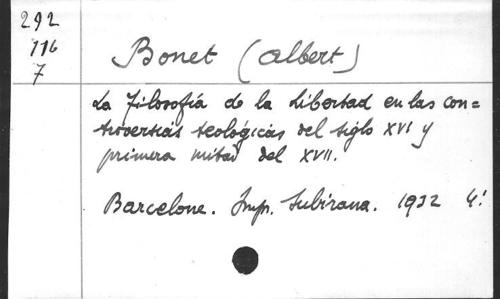 292
116
7
Bonet (Albert)
La Filosofía de la Libertad en las con=
troversias teológicas del siglo XVI y
primera mitad del XVII.
Barcelona. Imp. Subirana. 1932 4.º